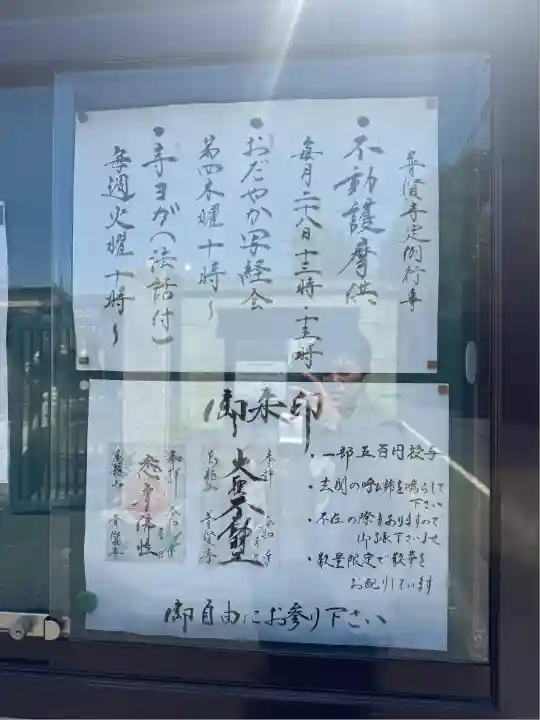 普賢寺定例行事
・不動護摩供
毎月二十八日十三時・十五時
・おだやか写経会
第四木曜十時〜
・寺ヨガ(法話付)
毎週火曜十時〜
御朱印
・一部五百円授与
・玄関の呼び鈴を鳴らして
下さい
・不在の際もありますので
御了承下さいませ
・数量限定で散華を
お配りしています
奉拝
大聖不動明王
普賢寺
奉拝
悉有佛性
普賢寺
御自由にお参り下さい